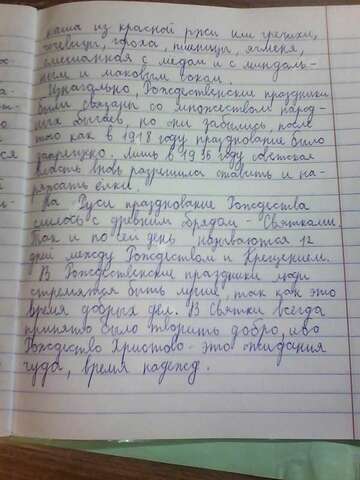 каша из красной ржи или гречихи,
чечевицы, гороха, пшеницы, ячменя,
смешанная с медом и с миндаль-
ным и маковым соком.
Изначально, Рождественские праздники
были связаны со множеством народ-
ных обычаев, но они забылись, после
того как в 1918 году празднование было
запрещено. Лишь в 1935 году советская
власть вновь разрешила ставить и на-
ряжать елки.
На Руси празднование Рождества
слилось с древним обрядом - Святками.
Так и по сей день называются 12
дней между Рождеством и Крещением.
В Рождественские праздники люди
стремятся быть лучше, так как это
время добрых дел. В Святки всегда
принято было творить добро, ибо
Рождество Христово - это ожидания
чуда, время надежд.